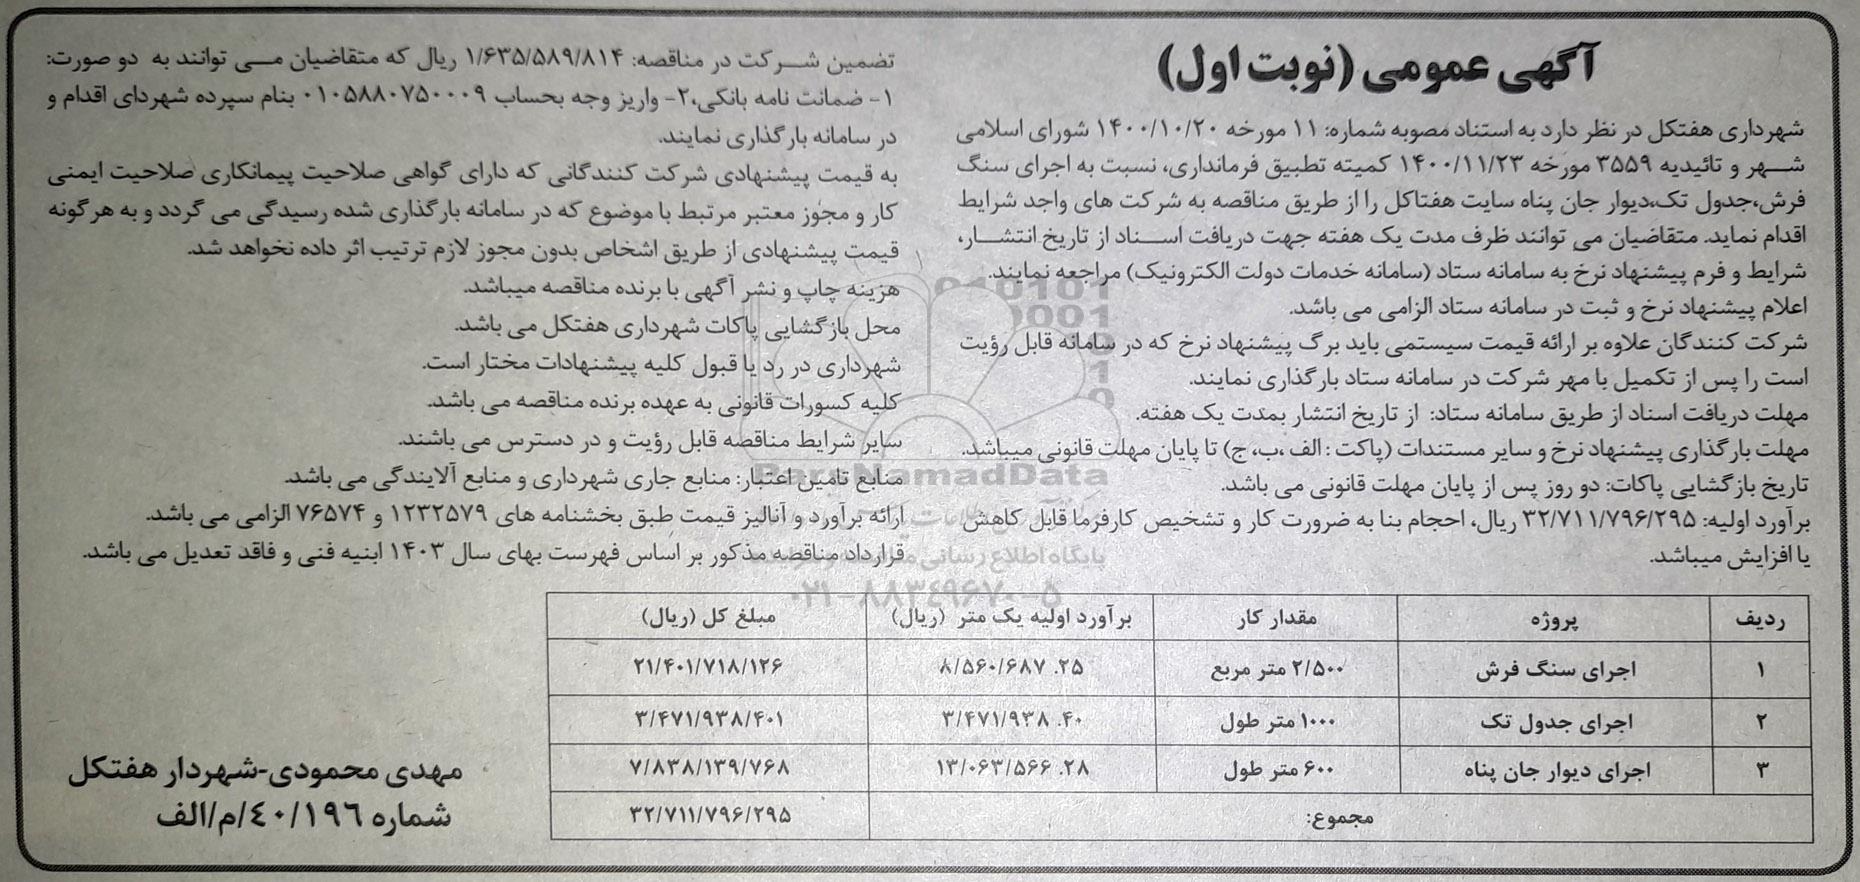 آگهی عمومی (نوبت اول)
شهرداری هفتکل در نظر دارد به استناد مصوبه شماره: ۱۱ مورخه ۱۴۰۰/۱۰/۲۰ شورای اسلامی
شهر و تائیدیه ۳۵۵۹ مورخه ۱۴۰۰/۱۱/۲۳ کمیته تطبیق فرمانداری، نسبت به اجرای سنگ
فرش،جدول تک،دیوار جان پناه سایت هفتاکل را از طریق مناقصه به شرکت های واجد شرایط
اقدام نماید. متقاضیان می توانند ظرف مدت یک هفته جهت دریافت اسناد از تاریخ انتشار،
شرایط و فرم پیشنهاد نرخ به سامانه ستاد (سامانه خدمات دولت الکترونیک) مراجعه نمایند.
اعلام پیشنهاد نرخ و ثبت در سامانه ستاد الزامی می باشد.
شرکت کنندگان علاوه بر ارائه قیمت سیستمی باید برگ پیشنهاد نرخ که در سامانه قابل رؤیت
است را پس از تکمیل با مهر شرکت در سامانه ستاد بارگذاری نمایند.
مهلت دریافت اسناد از طریق سامانه ستاد: از تاریخ انتشار بمدت یک هفته.
مهلت بارگذاری پیشنهاد نرخ و سایر مستندات (پاکت : الف ،ب، ج) تا پایان مهلت قانونی میباشد.
تاریخ بازگشایی پاکات: دو روز پس از پایان مهلت قانونی می باشد.
برآورد اولیه: ۳۲/۷۱۱/۷۹۶/۲۹۵ ریال، احجام بنا به ضرورت کار و تشخیص کارفرما قابل کاهش
یا افزایش میباشد.
تضمین شرکت در مناقصه: ۱/۶۳۵/۵۸۹/۸۱۴ ریال که متقاضیان می توانند به دو صورت:
۱- ضمانت نامه بانکی،۲- واریز وجه بحساب ۰۱۰۵۸۸۰۷۵۰۰۰۹ بنام سپرده شهردای اقدام و
در سامانه بارگذاری نمایند.
به قیمت پیشنهادی شرکت کنندگانی که دارای گواهی صلاحیت پیمانکاری صلاحیت ایمنی
کار و مجوز معتبر مرتبط با موضوع که در سامانه بارگذاری شده رسیدگی می گردد و به هرگونه
قیمت پیشنهادی از طریق اشخاص بدون مجوز لازم ترتیب اثر داده نخواهد شد.
هزینه چاپ و نشر آگهی با برنده مناقصه میباشد.
محل بازگشایی پاکات شهرداری هفتکل می باشد.
شهرداری در رد یا قبول کلیه پیشنهادات مختار است.
کلیه کسورات قانونی به عهده برنده مناقصه می باشد.
سایر شرایط مناقصه قابل رؤیت و در دسترس می باشند.
منابع تامین اعتبار: منابع جاری شهرداری و منابع آلایندگی می باشد.
ارائه برآورد و آنالیز قیمت طبق بخشنامه های ۱۲۳۲۵۷۹ و ۷۶۵۷۴ الزامی می باشد.
قرارداد مناقصه مذکور بر اساس فهرست بهای سال ۱۴۰۳ ابنیه فنی و فاقد تعدیل می باشد.
ردیف پروژه مقدار کار برآورد اولیه یک متر (ریال) مبلغ کل (ریال)
۱ اجرای سنگ فرش ۲/۵۰۰ متر مربع ۸/۵۶۰/۶۸۷ .۲۵ ۲۱/۴۰۱/۷۱۸/۱۲۶
۲ اجرای جدول تک ۱۰۰۰ متر طول ۳/۴۷۱/۹۳۸ .۴۰ ۳/۴۷۱/۹۳۸/۴۰۱
۳ اجرای دیوار جان پناه ۶۰۰ متر طول ۱۳/۰۶۳/۵۶۶ .۲۸ ۷/۸۳۸/۱۳۹/۷۶۸
مجموع: ۳۲/۷۱۱/۷۹۶/۲۹۵
مهدی محمودی-شهردار هفتکل
شماره ۴۰/۱۹۶/م/الف
ParsNamadData
پایگاه اطلاع رسانی
۰۲۱-۸۸۳۴۹۶۷۰-۵